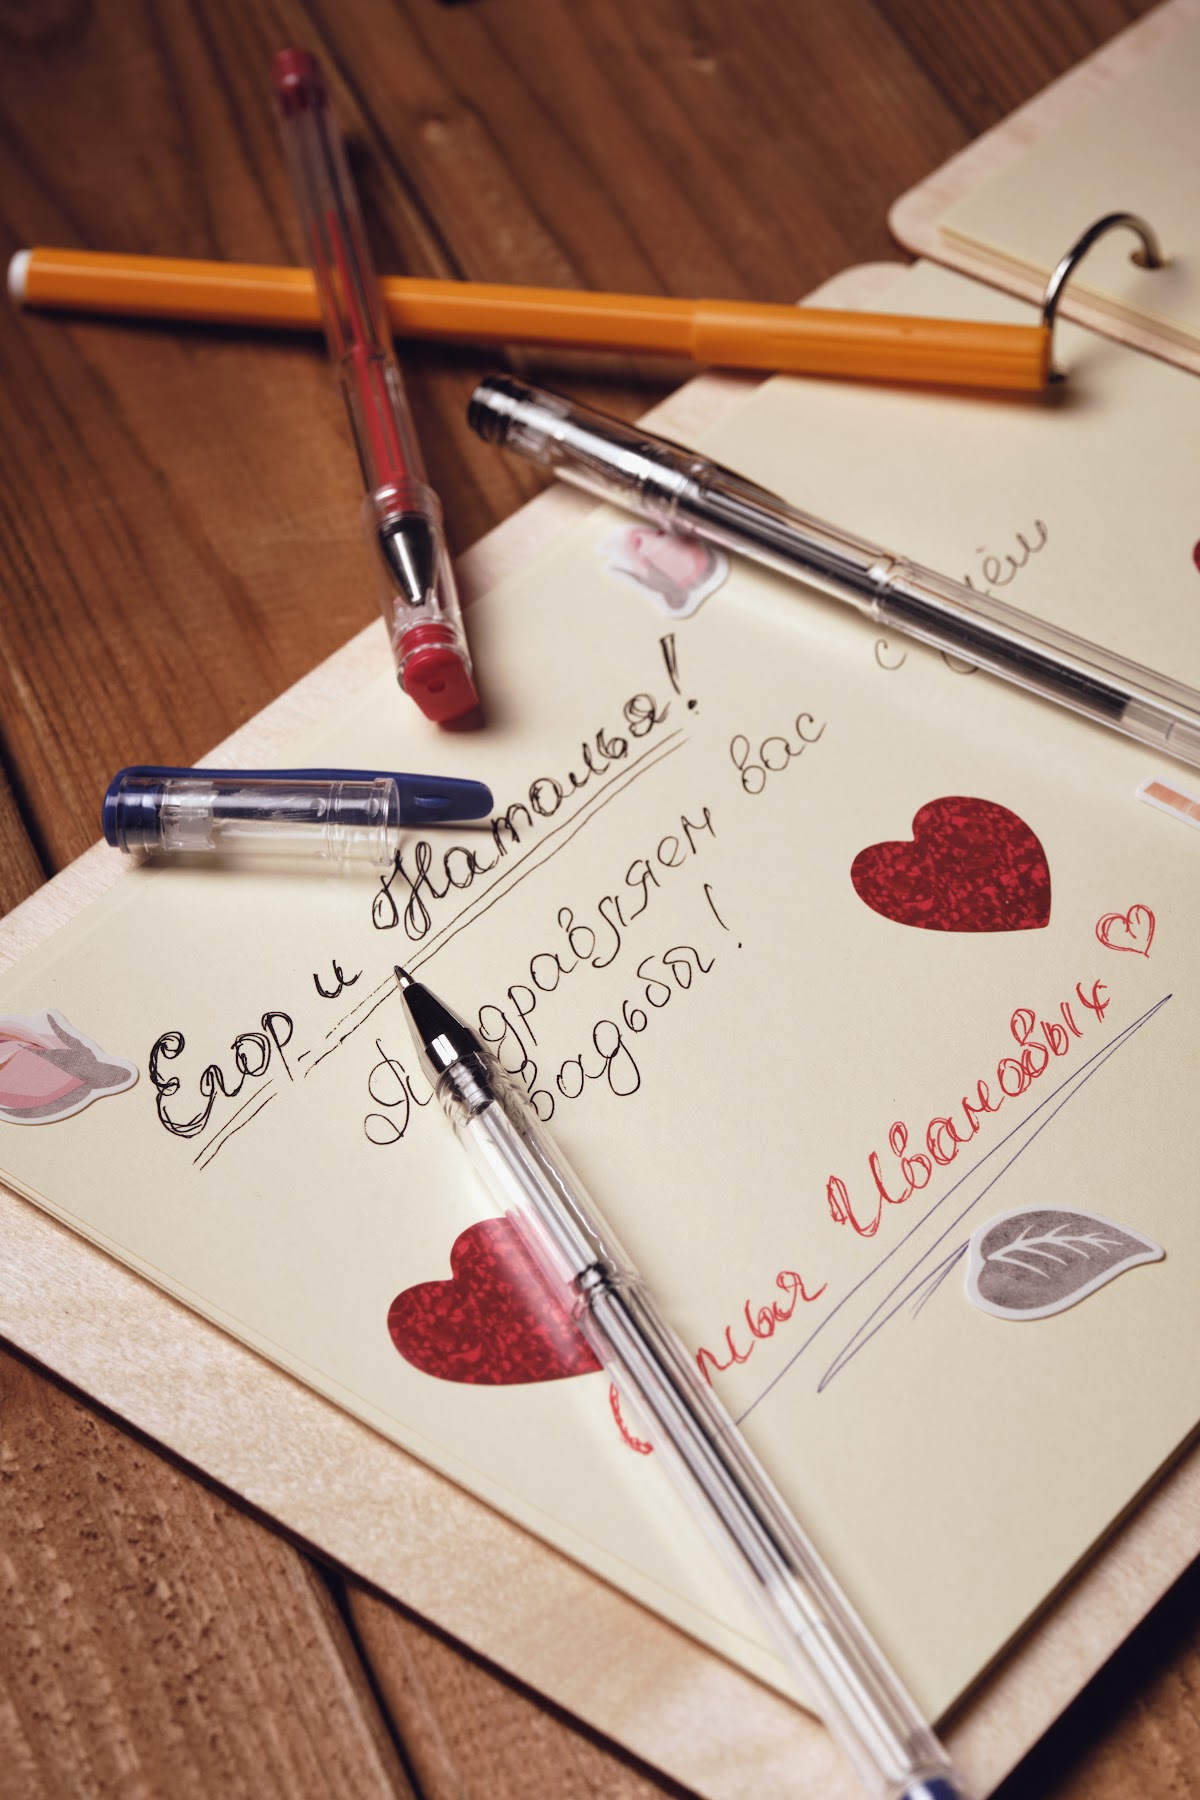 Егор и Наталья!
Поздравляем вас с днём
свадьбы!
Семья Ивановых